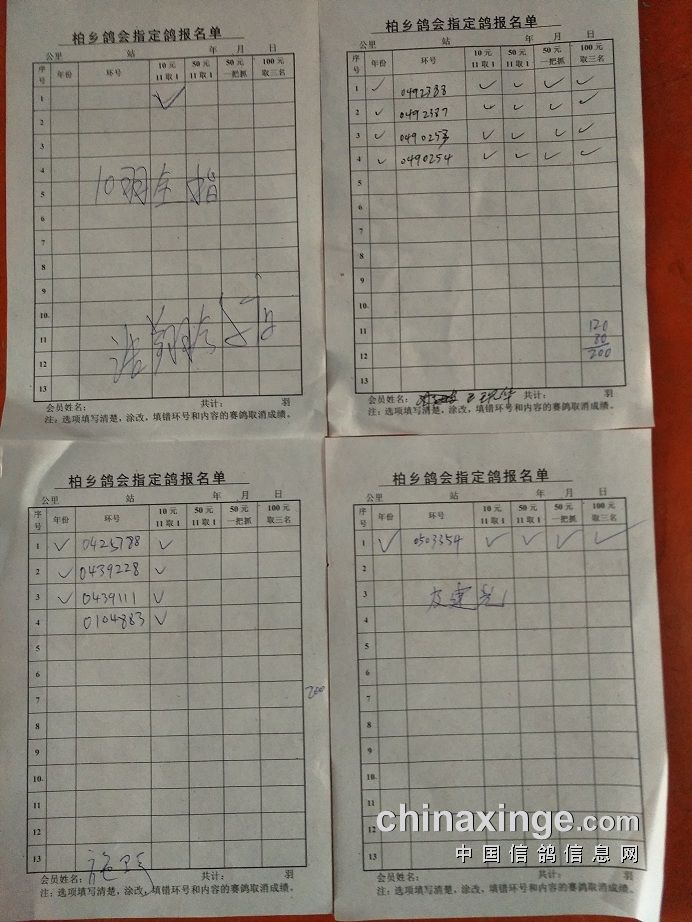 柏乡鸽会指定鸽报名单
公里 站 年 月 日
序号 年份 环号 10元 11取1 50元 11取1 50元 一把抓 100元 取三名
1 ✓
2
3
4
5 10羽全指
6
7
8
9
10
11
12
13
会员姓名: 共计: 羽
注: 选项填写清楚, 涂改、填错环号和内容的赛鸽取消成绩。
柏乡鸽会指定鸽报名单
公里 站 年 月 日
序号 年份 环号 10元 11取1 50元 11取1 50元 一把抓 100元 取三名
1 ✓ 0492388 ✓ ✓ ✓ ✓
2 ✓ 0492387 ✓ ✓ ✓ ✓
3 ✓ 0490253 ✓ ✓ ✓ ✓
4 ✓ 0490254 ✓ ✓ ✓ ✓
5
6
7
8
9
10
11 120
12 80
200
13
会员姓名: 共计: 羽
注: 选项填写清楚, 涂改、填错环号和内容的赛鸽取消成绩。
柏乡鸽会指定鸽报名单
公里 站 年 月 日
序号 年份 环号 10元 11取1 50元 11取1 50元 一把抓 100元 取三名
1 ✓ 0425788 ✓
2 ✓ 0439228 ✓
3 ✓ 0439111 ✓
4 0104883 ✓
5
6
7 200
8
9
10
11
12
13
会员姓名: 共计: 羽
注: 选项填写清楚, 涂改、填错环号和内容的赛鸽取消成绩。
柏乡鸽会指定鸽报名单
公里 站 年 月 日
序号 年份 环号 10元 11取1 50元 11取1 50元 一把抓 100元 取三名
1 ✓ 0503354 ✓ ✓ ✓ ✓
2
3
4
5
6
7
8
9
10
11
12
13
会员姓名: 共计: 羽
注: 选项填写清楚, 涂改、填错环号和内容的赛鸽取消成绩。
chinaxinge.com
中国信鸽信息网